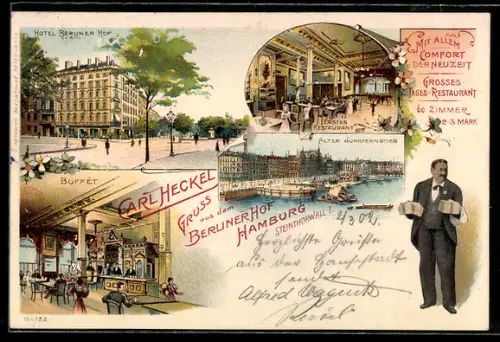 HOTEL BERLINER HOF
MIT ALLEM
COMFORT
DER NEUZEIT
GROSSES
TAGES-RESTAURANT
60 ZIMMER
2-3 MARK.
ERSTES
RESTAURANT
ALTER JUNGFERNSTIEG
BUFFET
CARL HECKEL
GRUSS
aus dem
BERLINER HOF
HAMBURG
STEINTHORWALL 1.
2/3 02.
Herzlichste Grüsse
aus der Hansestadt
sendet
Alfred